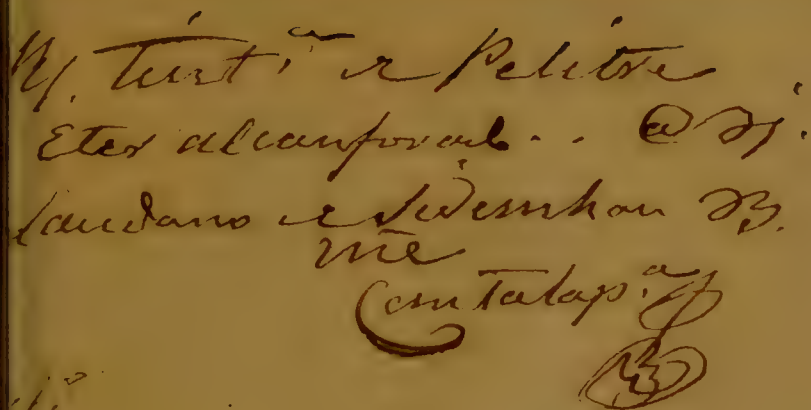 R/. Tint.ª de Pelitre
Eter alcanforado . . @ ʒj.
Laudano de Sidemhan ʒß.
me